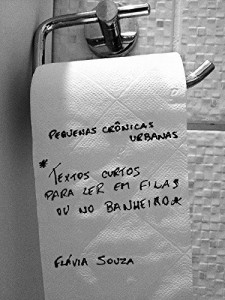 PEQUENAS CRÔNICAS
URBANAS
*TEXTOS CURTOS
PARA LER EM FILAS
OU NO BANHEIRO*
FLÁVIA SOUZA